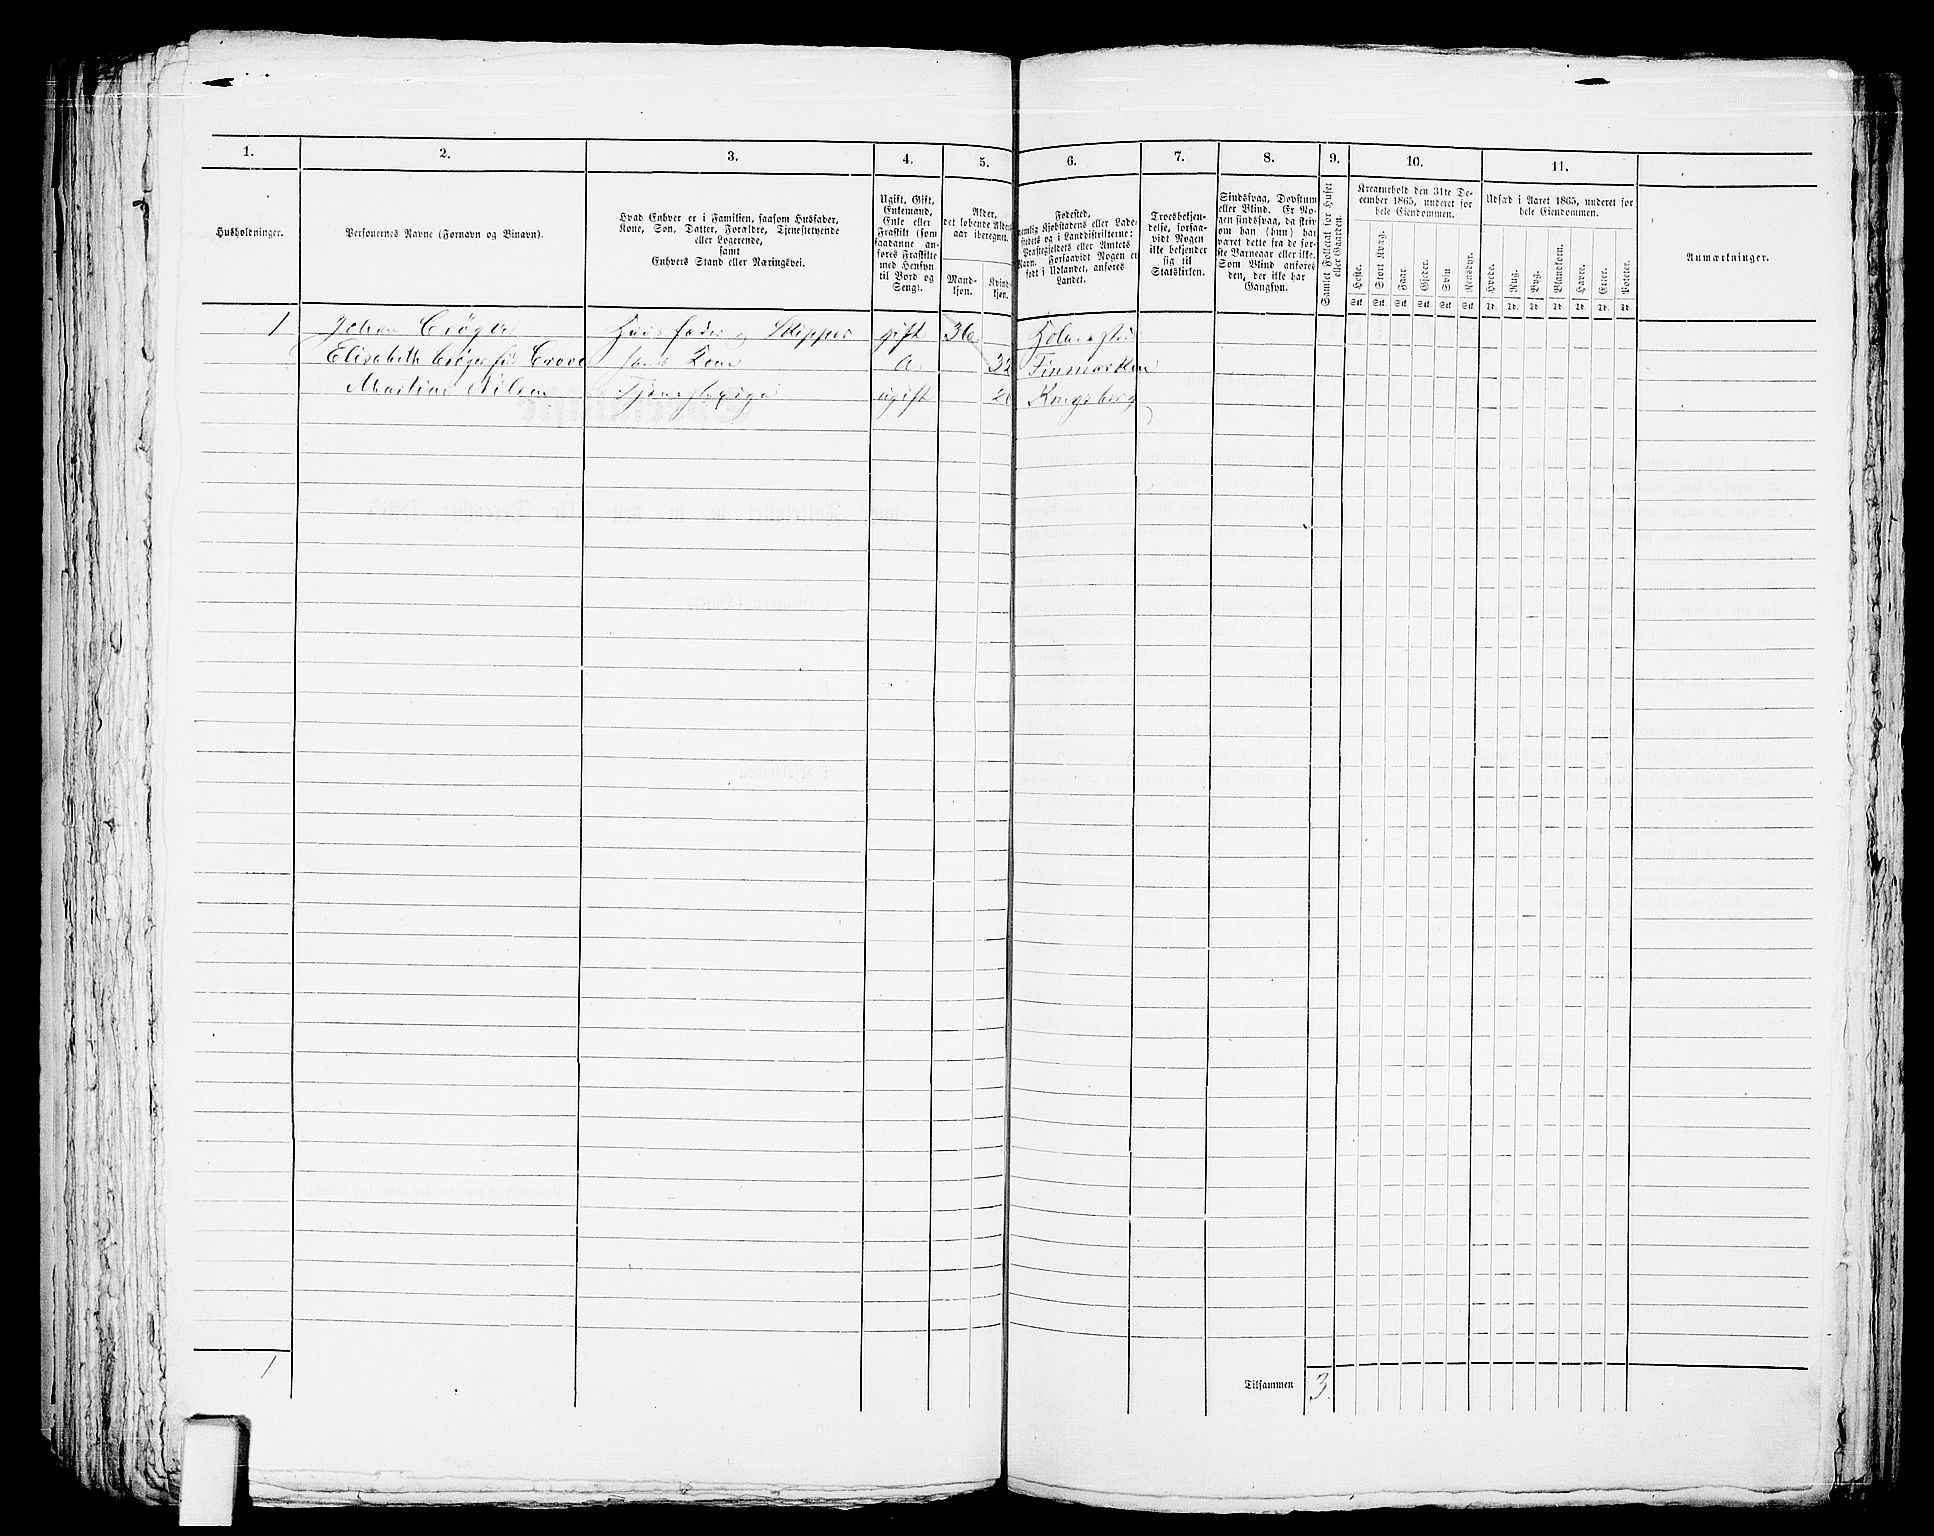 1. 2. 3. 4. 5. 6. 7. 8. 9. 10. 11.
Husholdninger.
Personernes Navne (Fornavn og Binavn).
Hvad Enhver er i Familien, saasom Husfader,
Kone, Søn, Datter, Forældre, Tjenestetyende
eller Logerende,
samt
Enhvers Stand eller Næringsvei.
Ugift, Gift,
Enkemand,
Enke eller
Fraskilt (som
saadanne an-
føres Fraskilte
med Hensyn
til Bord og
Seng).
Alder,
det løbende Alders-
aar iberegnet.
Mand-
kjøn.
Kvind-
kjøn.
Fødested,
nemlig Kjøbstadens eller Lade-
stedets og i Landdistrikterne:
Præstegjeldets eller Amtets
Navn. Forsaavidt Nogen er
født i Udlandet, anføres
Landet.
Troesbekjen-
delse, forsaa-
vidt Nogen
ikke bekjender
sig til
Statskirken.
Sindssvag, Døvstum
eller Blind. Er No-
gen sindssvag, da skriv
om han (hun) har
været dette fra de før-
ste Barneaar eller ikke.
Som Blind anføres
den, der ikke har
Gangsyn.
Samlet Folketal for Huset
eller Gaarden.
Kreaturhold den 31te De-
cember 1865, underet for
hele Eiendommen.
Heste. Stort Kvæg. Faar. Gjeder. Svin Rensdyr.
Stk. Stk. Stk. Stk. Stk. Stk.
Udsæd i Aaret 1865, underet for
hele Eiendommen.
Hvede. Rug. Byg. Blandkorn. Havre. Erter. Poteter.
Td. Td. Td. Td. Td. Td. Td.
Anmærkninger.
1 Johan Crøger Huusfader og Skipper gift 36 Holmestrand
Elisabeth Crøger fød Crove hans Kone 32 Finmarken
Martine Nilsen Tjenestepige ugift Kongsberg
1
Tilsammen 3.